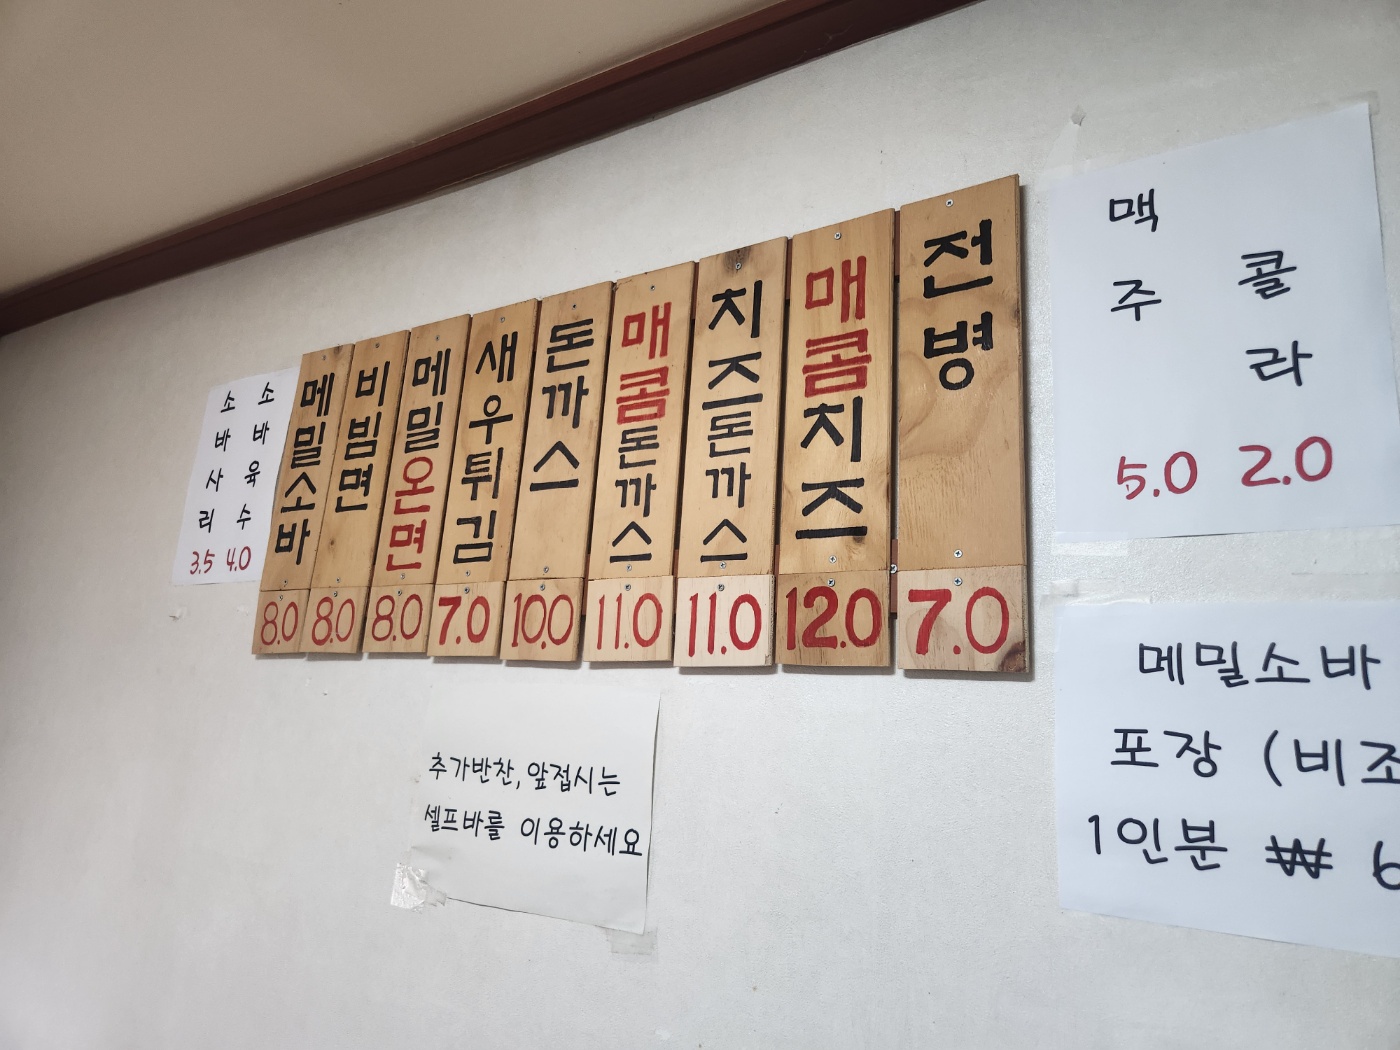 소바사리 3.5
소바육수 4.0
메밀소바 8.0
비빔면 8.0
메밀온면 8.0
새우튀김 7.0
돈까스 10.0
매콤돈까스 11.0
치즈돈까스 11.0
매콤치즈 12.0
전병 7.0
맥주 5.0
콜라 2.0
추가반찬, 앞접시는
셀프바를 이용하세요
메밀소바
포장 (비조
1인분 ₩ 6